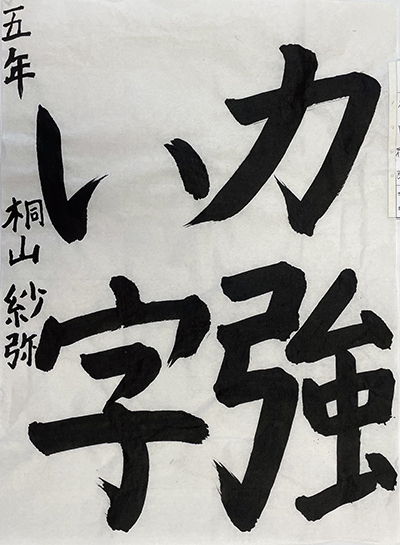 力強
い字
五年 桐山紗弥